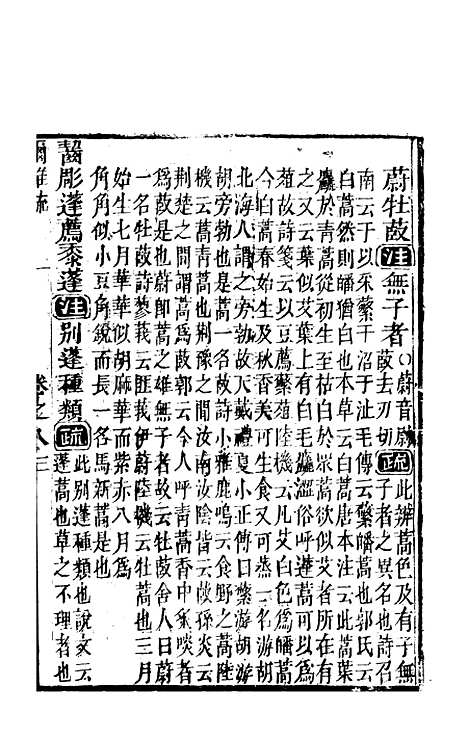 蔚牡菣注無子者○蔚音尉菣去刃切疏此辨蒿色及有子無子者之異名也詩召
南云于以采蘩于沼于沚毛傳云蘩皤蒿也郭氏云
白蒿然則皤猶白也本草云白蒿唐本注云此蒿葉
麤於青蒿從初生至枯白於眾蒿欲似艾者所在有
之又云葉似艾葉上有白毛麤澀俗呼蓬蒿可以為
菹故詩箋云以豆薦蘩菹陸機云凡艾白色為皤蒿
今白蒿春始生及秋香美可生食又可烝一名游胡
北海人謂之旁勃故大戴禮夏小正傳曰蘩游胡游
胡旁勃也是蒿一名菣故詩小雅鹿鳴云食野之蒿陸
機云蒿青蒿也荆豫之間汝南汝陰皆云菣孫炎云
荆楚之間謂蒿為菣郭云今人呼青蒿香中炙啖者
為菣是也蔚即蒿之雄無子者故云牡菣舍人曰蔚
一名牡菣詩蓼莪云匪莪伊蔚陸機云牡蒿也三月
始生七月華華似胡麻華而紫赤八月為
角角似小豆角銳而長一名馬新蒿是也
齧彫蓬薦黍蓬注別蓬種類疏此別蓬種類也說文云蓬蒿也草之不理者也
爾雅疏 卷之八 三